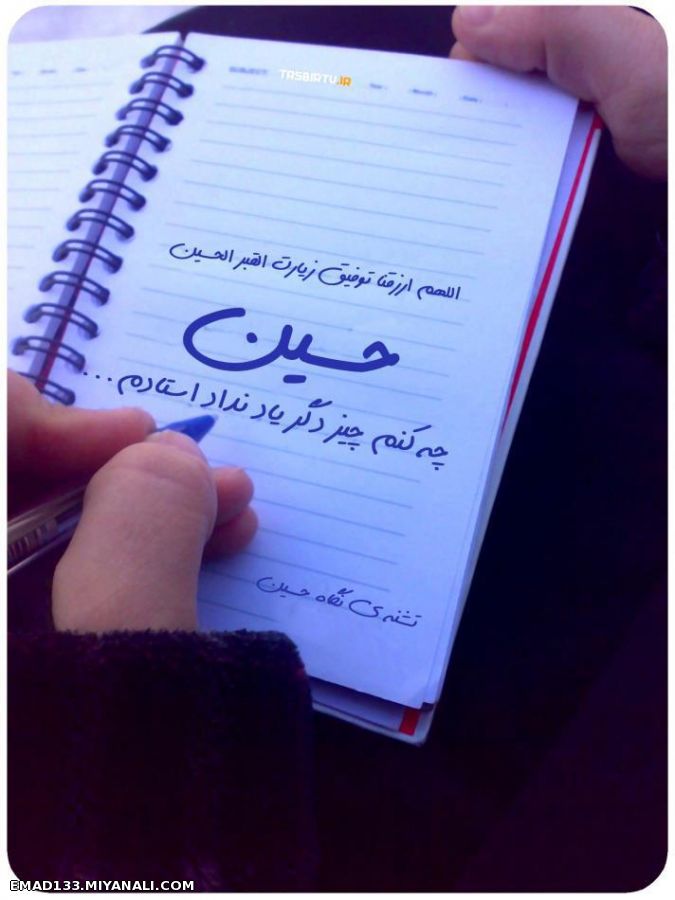 SUBJECT:
TASBIRTU.IR
اللهم ارزقنا توفیق زیارت القبر الحسین
حسین
چه کنم چیز دگر یاد نداد استادم...
تشنه ی نگاه حسین
EMAD133.MIYANALI.COM